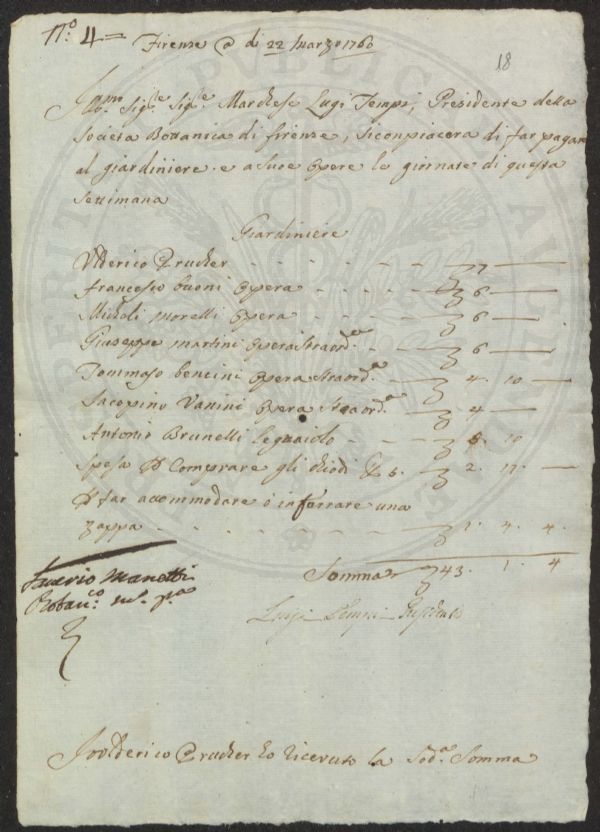 N.º 4 = Firenze @ di 22 Marzo 1760
18
Ill.mo Sig.re Sig.re Marchese Luigi Tempi, Presidente della
Societa Bottanica di firenze, si conpiacera di far pagare
al giardiniere e a sue Opere le giornate di questa
settimana
Giardiniere
Vlderico Prucker - - - - - - 7 —
francesco buoni Opera - - - - 6 —
Micheli morelli Opera - - - - 6 —
Giuseppe martini Opera Straord.a - - 6 —
Tommaso bencini Opera Straord.a - 4. 10 —
Jacopino Vanini Opera Straord.a - 4 —
Antonio Brunelli Legnaiolo - - 10
Spesa P Comprare gli chiodi 5. - 2. —
P far accommodare o inferrare una
zappa - - - - - - 1. 4. 4.
Somma 43. 1. 4
Saverio Manetti
Botan.co
Luigi Tempi Presidente
Io Vlderico Prucker ho riceuuto la Sod.a Somma
PUBLICAE